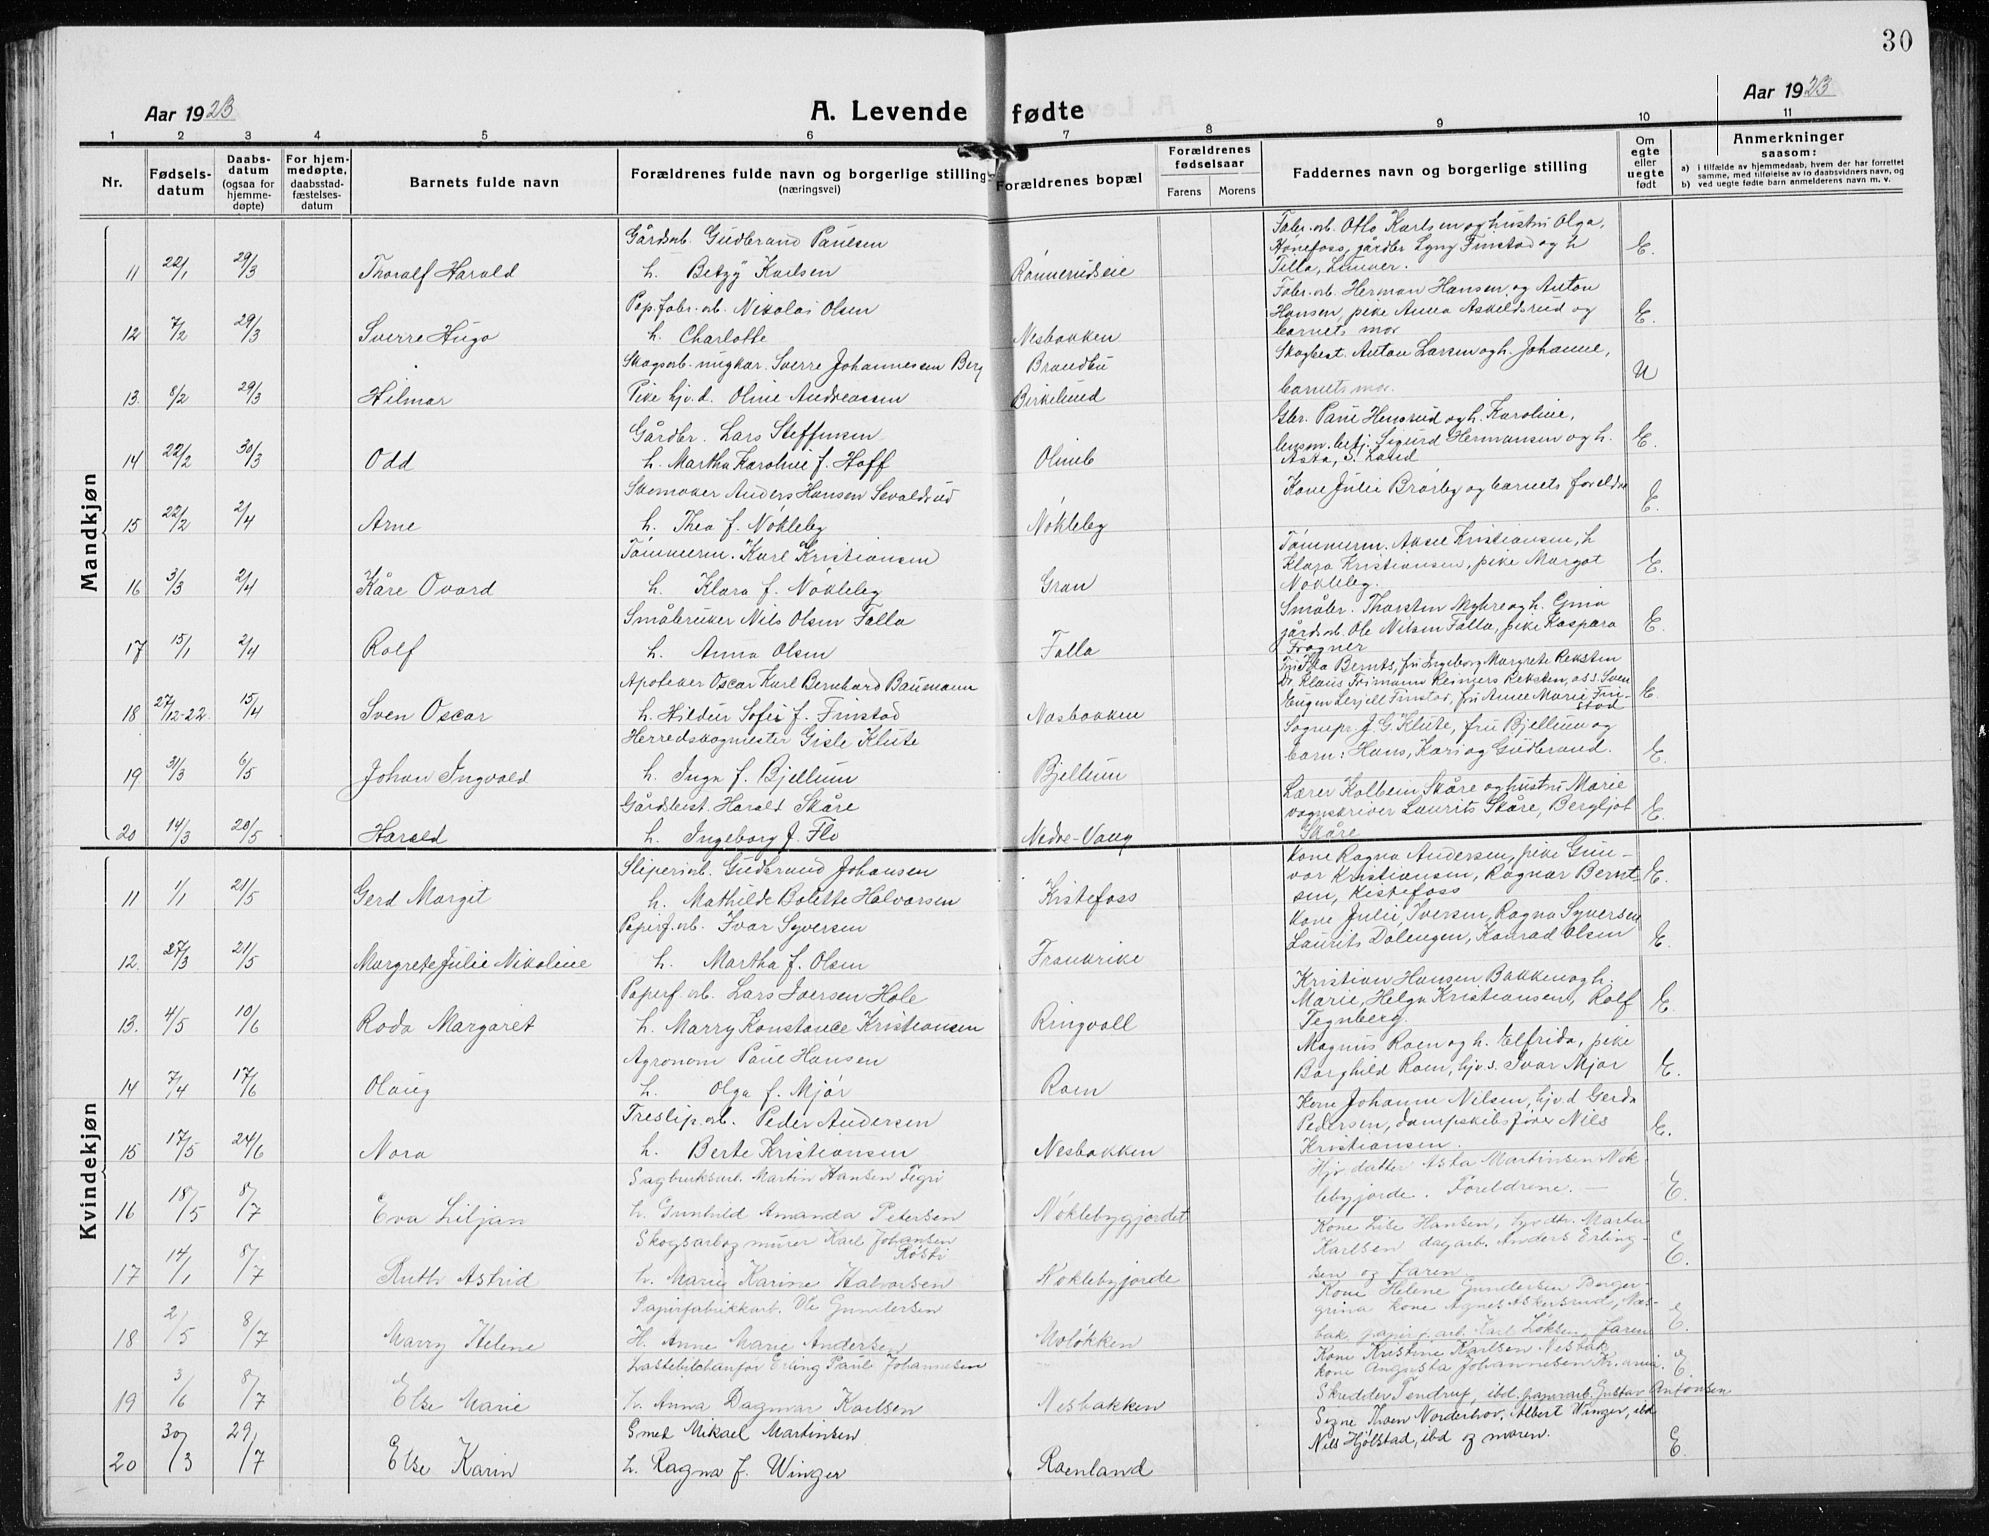 30
Aar 1923 A. Levende fødte Aar 1923
1 2 3 4 5 6 7 8 9 10 11
Nr. Fødsels-datum Daabs-datum (ogsaa for hjemme-døpte) For hjem-medøpte, daabsstad-fæstelses-datum Barnets fulde navn Forældrenes fulde navn og borgerlige stilling (næringsvei) Forældrenes bopæl Forældrenes fødselsaar Farens Morens Faddernes navn og borgerlige stilling Om egte eller uegte født Anmerkninger saasom: a) i tilfælde av hjemmedaab, hvem der har forrettet samme, med tilføielse av to daabsvidners navn, og b) ved uegte fødte barn anmelderens navn m. v.
Mandkjøn
Gårdsarb. Gudbrand Paulsen Fabr.arb. Otto Karlsen og hustru Olga,
Hønefoss, gårdbr Lyny Finstad og h
11 22/1 29/3 Thoralf Harald h. Betzy Karlsen Rønnerudseie Tilla, Lunner. E.
Pap.fabr.arb. Nikolai Olsen Fabr.arb. Herman Hansen og Anton
Hansen, pike Anna Askildsrud og
12 7/2 29/3 Sverre Hugo h. Charlotte Nesbakken barnets mor E.
Skogsarb. ungkar. Sverre Johannessen Berg Brandbu Skogbest. Anton Larsen og h. Johanne,
13. 8/2 29/3 Hilmar Pike hjv.d. Oline Andreassen Birkelund barnets mor. U
Gårdbr. Lars Steffensen Gbr. Paul Hensrud og h. Karoline,
bensin.betj. Sigurd Hermansen og h.
14 22/2 30/3 Odd h. Martha Karoline f. Hoff Olimb Asta, S. Land E.
Skomaker Anders Hansen Sevaldrud Kone Julie Brørby og barnets foreldre
15 22/2 2/4 Arne h. Thea f. Nøkleby Nøkleby E.
Tømmerm. Karl Kristiansen Tømmerm. Aksel Kristiansen, h
Klara Kristiansen, pike Margot
16 3/3 2/4 Kåre Ovard h. Klara f. Nøkleby Gran Nøkleby. E.
Småbruker Nils Olsen Falla Småbr. Thorsten Myhre og h. Gina
gårdsarb. Ole Nilsen Falla, pike Kaspara
17 15/1 2/4 Rolf h. Anna Olsen Falla Frogner E.
Apoteker Oscar Karl Bernhard Baumann Fru Ida Bernts, fru Ingeborg Margrete Reksten
Dr. Klaus Frimann Reimers Reksten, ass. Sven
18 27/12-22 15/4 Sven Oscar h. Hildur Sofie f. Finstad Nesbakken Eugen Lerjell Finstad, fru Anne Marie Fin-stad E.
Herredskogmester Gisle Klute Sognepr. J. G. Klute, fru Bjellum og
19 31/3 6/5 Johan Ingvald h. Inga f. Bjellum Bjellum barn: Hans, Kari og Gudbrand. E.
Gårdbest. Harald Skåre Lærer Kolbein Skåre og hustru Marie
vognskriver Laurits Skåre, Bergljot
20 14/3 20/5 Harald h. Ingeborg f. Flo Nedre-Vang Skåre E.
Kvindekjøn
Sliperiarb. Gudbrand Johansen Kone Ragna Andersen, pike Gun-
vor Kristiansen, Ragnar Bernt-
11 1/1 21/5 Gerd Margit h. Mathilde Bolette Halvorsen Kistefoss sen, Kistefoss E.
Papirf.arb. Ivar Syversen Kone Julie Iversen, Ragna Syversen
12. 27/3 21/5 Margrete Julie Nikoline h. Martha f. Olsen Frankrike Laurits Dølengen, Konrad Olsen E.
Papirf.arb. Lars Iversen Hole Kristian Hansen Bakken og h.
Marie, Helga Kristiansen, Rolf
13. 4/5 10/6 Roda Margaret h. Marry Konstance Kristiansen Ringvoll Tegnberg. E.
Agronom Paul Hansen Magnus Roen og h. Elfrida, pike
14 7/4 17/6 Olaug h. Olga f. Mjør Roen Borghild Roen, hjv.s. Ivar Mjør E.
Treslip.arb. Peder Andersen Kone Johanne Nilsen, hjv.d Gerda
Pedersen, dampskibsfører Nils
15 17/5 24/6 Nora h. Berte Kristiansen Nesbakken Kristiansen. E.
Sagbruksarb. Martin Hansen Tegri Hjv. datter Asta Martinsen Nøk-
16 18/5 8/7 Eva Liljan h. Gunhild Amanda Petersen Nøklebygjordet lebyjorde. Foreldrene. — E.
Skogsarb og murer Karl Johansen Røsti Kone Lise Hansen, hjv.dtr. Marta
Karlsen dagarb. Anders Erling-
17 14/1 8/7 Ruth Astrid h. Marie Karine Halvorsen Nøklebyjorde sen og faren E.
Papirfabrikkarb. Ole Gundersen Kone Helene Gundersen Berger-
grina kone Agnes Askersrud, Nes-
18 2/5 8/7 Marry Helene H. Anne Marie Andersen Moløkken bak. papirf.arb. Karl Løksen, faren E.
Lastebilchaufør Erling Paul Johannesen Kone Kristine Karlsen Nesbak
kone Augusta Johannesen E
19 3/6 8/7 Else Marie h. Anna Dagmar Karlsen Nesbakken Skredder Tendruf, ibd. papirarb. Gustav Antonsen
Smed Mikael Martinsen Signe Thoen Norderhov. Albert Winger, ibd
20 30/3 29/7 Else Karin h. Ragna f. Winger Roenland Nils Hjølstad, ibd og moren. E.